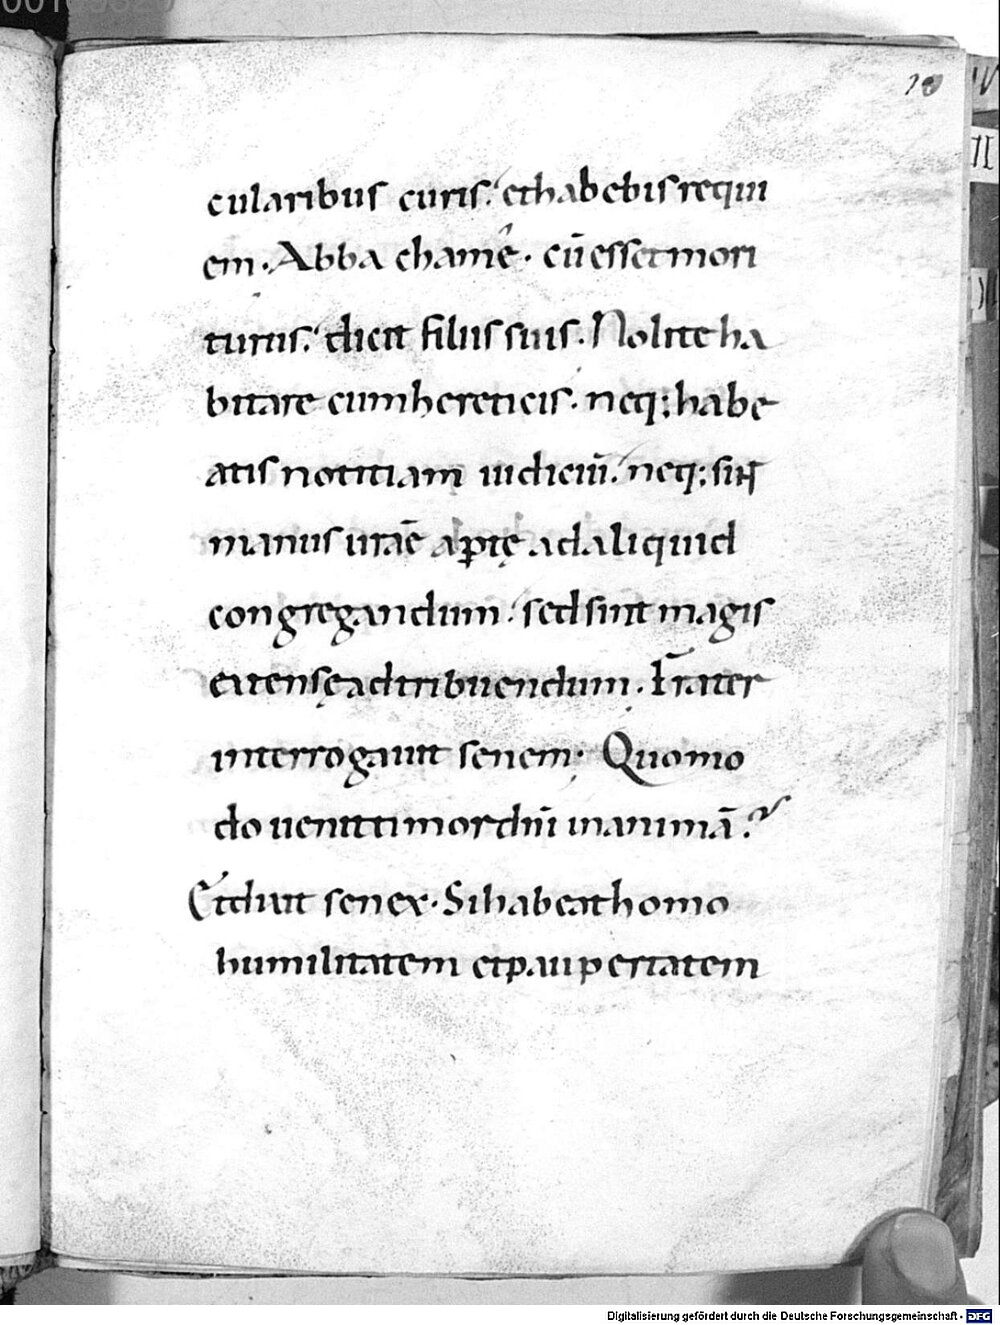 20
cularibus curis. et habebis requi
em. Abba chamę̄. cū esset mori
turus. dicit filiis suis. Nolite ha
bitare cum hereticis. neq; habe
atis notitiam iudicūū. neq; sīt
manus urāe aptę ad aliquid
congregandum. sed sint magis
extensę ad tribuendum. Frater
interrogauit senem. Quomo
do uenit timor dn̄i in animā.
Et dixit senex. Si habeat homo
humilitatem et paupertatem
Digitalisierung gefördert durch die Deutsche Forschungsgemeinschaft - DFG